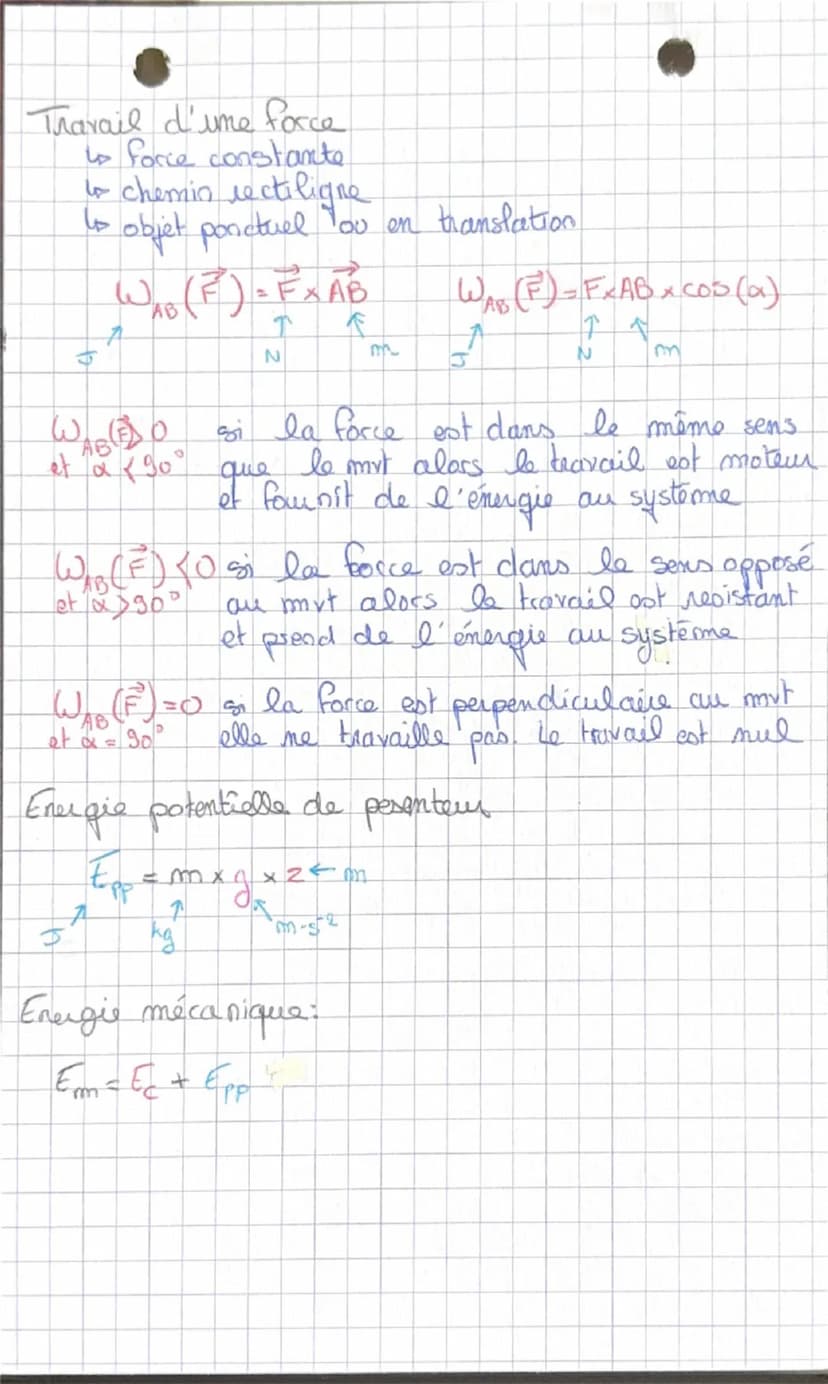 Travail d'une force
↳ force constante
↳ chemin rectiligne
↳ objet ponctuel ou en translation
W_AB(F⃗) = F⃗ × AB⃗    W_AB(F⃗) = F×AB × cos(α)
J    N    m    J    N    m
W_AB(F⃗)>0 si la force est dans le même sens
et α < 90° que le mvt alors le travail est moteur
et fournit de l'énergie au système
W_AB(F⃗) <0 si la force est dans le sens opposé
et α > 90° au mvt alors le travail est resistant
et prend de l'énergie au système
W_AB(F⃗) = 0 si la force est perpendiculaire au mvt
et α = 90° elle ne travaille pas. Le travail est nul
Energie potentielle de pesanteur
Epp = m × g × z ← m
J    kg    m·s⁻²
Energie mécanique:
Em = Ec + Epp